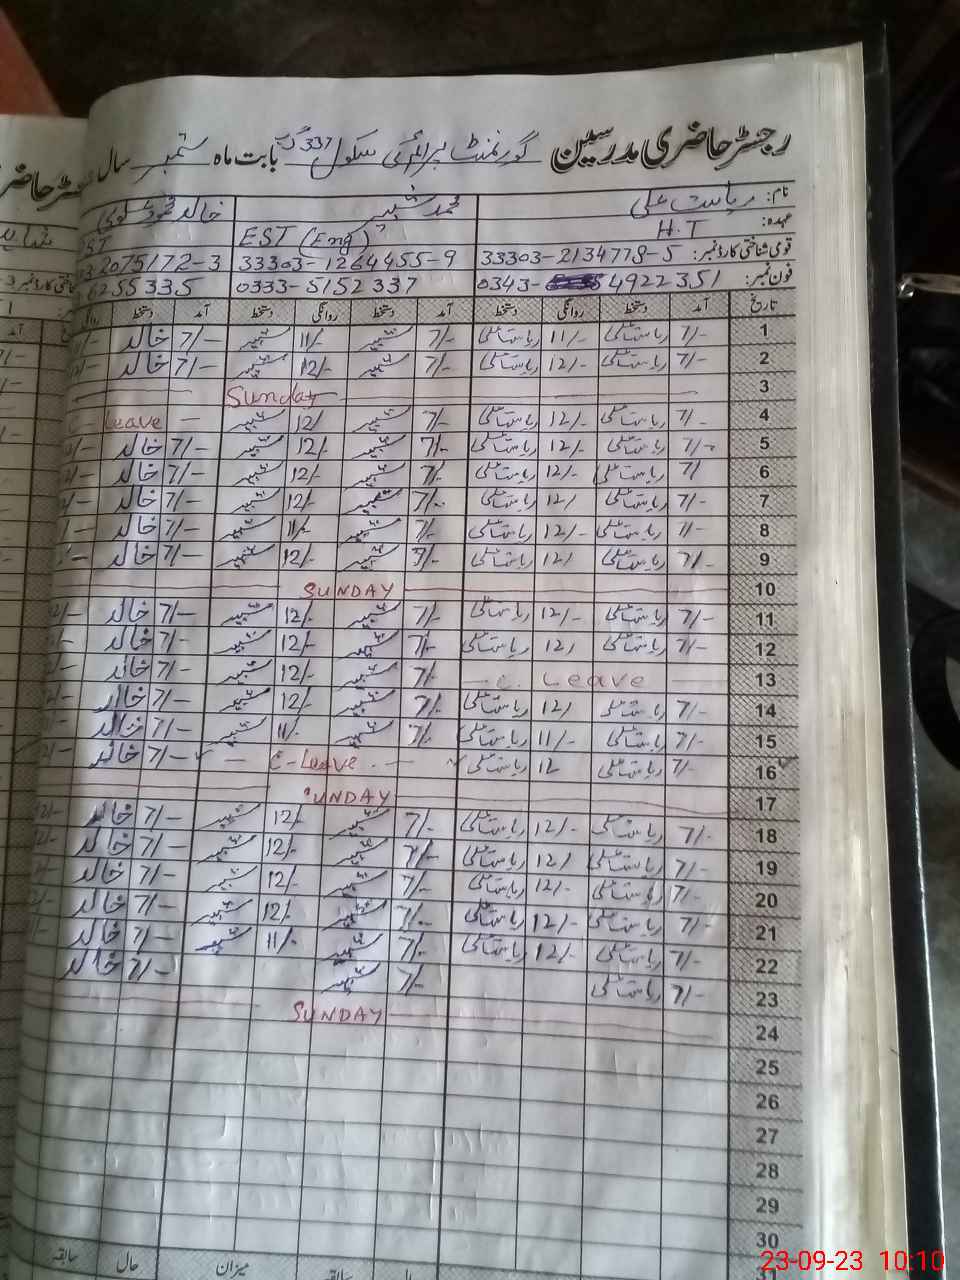 رجسٹر حاضری مدرسین گورنمنٹ پرائمری سکول 337 گ ب بابت ماہ ستمبر سال
نام: ریاست علی محمد شبیر خالد
عہدہ: H.T EST (Eng) EST
قومی شناختی کارڈ نمبر: 33303-2134778-5 33303-1264455-9 2075172-3
فون نمبر: 0343-4922351 0333-5152337 6255335
تاریخ آمد دستخط روانگی دستخط آمد دستخط روانگی دستخط آمد دستخط روانگی
1 7/- ریاست علی 11/- ریاست علی 7/- شبیر 11/- شبیر 7/- خالد
2 7/- ریاست علی 12/- ریاست علی 7/- شبیر 12/- شبیر 7/- خالد
3 Sunday
4 7/- ریاست علی 12/- ریاست علی 7/- شبیر 12/ شبیر Leave
5 7/- ریاست علی 12/- ریاست علی 7/- شبیر 12/ شبیر 7/- خالد
6 7/ ریاست علی 12/- ریاست علی 7/- شبیر 12/- شبیر 7/- خالد
7 7/- ریاست علی 12/ ریاست علی 7/- شبیر 12/- شبیر 7/- خالد
8 7/- ریاست علی 12/- ریاست علی 7/- شبیر 11/- شبیر 7/- خالد
9 7/- ریاست علی 12/ ریاست علی 7/- شبیر 12/- شبیر 7/- خالد
10 SUNDAY
11 7/- ریاست علی 12/- ریاست علی 7/- شبیر 12/- شبیر 7/- خالد
12 7/- ریاست علی 12/ ریاست علی 7/- شبیر 12/- شبیر 7/- خالد
13 C. Leave 7/- شبیر 12/- شبیر 7/- خالد
14 7/- ریاست علی 12/ ریاست علی 7/- شبیر 12/- شبیر 7/- خالد
15 7/- ریاست علی 11/- ریاست علی 7/- شبیر 11/- شبیر 7/- خالد
16 7/- ریاست علی 12 ریاست علی C-Leave 7/- خالد
17 SUNDAY
18 7/- ریاست علی 12/- ریاست علی 7/- شبیر 12/- شبیر 7/- خالد
19 7/- ریاست علی 12/ ریاست علی 7/- شبیر 12/- شبیر 7/- خالد
20 7/- ریاست علی 12/- ریاست علی 7/- شبیر 12/- شبیر 7/- خالد
21 7/- ریاست علی 12/- ریاست علی 7/- شبیر 12/- شبیر 7/- خالد
22 7/- ریاست علی 12/- ریاست علی 7/- شبیر 11/- شبیر 7/- خالد
23 7/- ریاست علی 7/- شبیر 7/- خالد
24 SUNDAY
25
26
27
28
29
30
میزان حال سابقہ
23-09-23 10:10